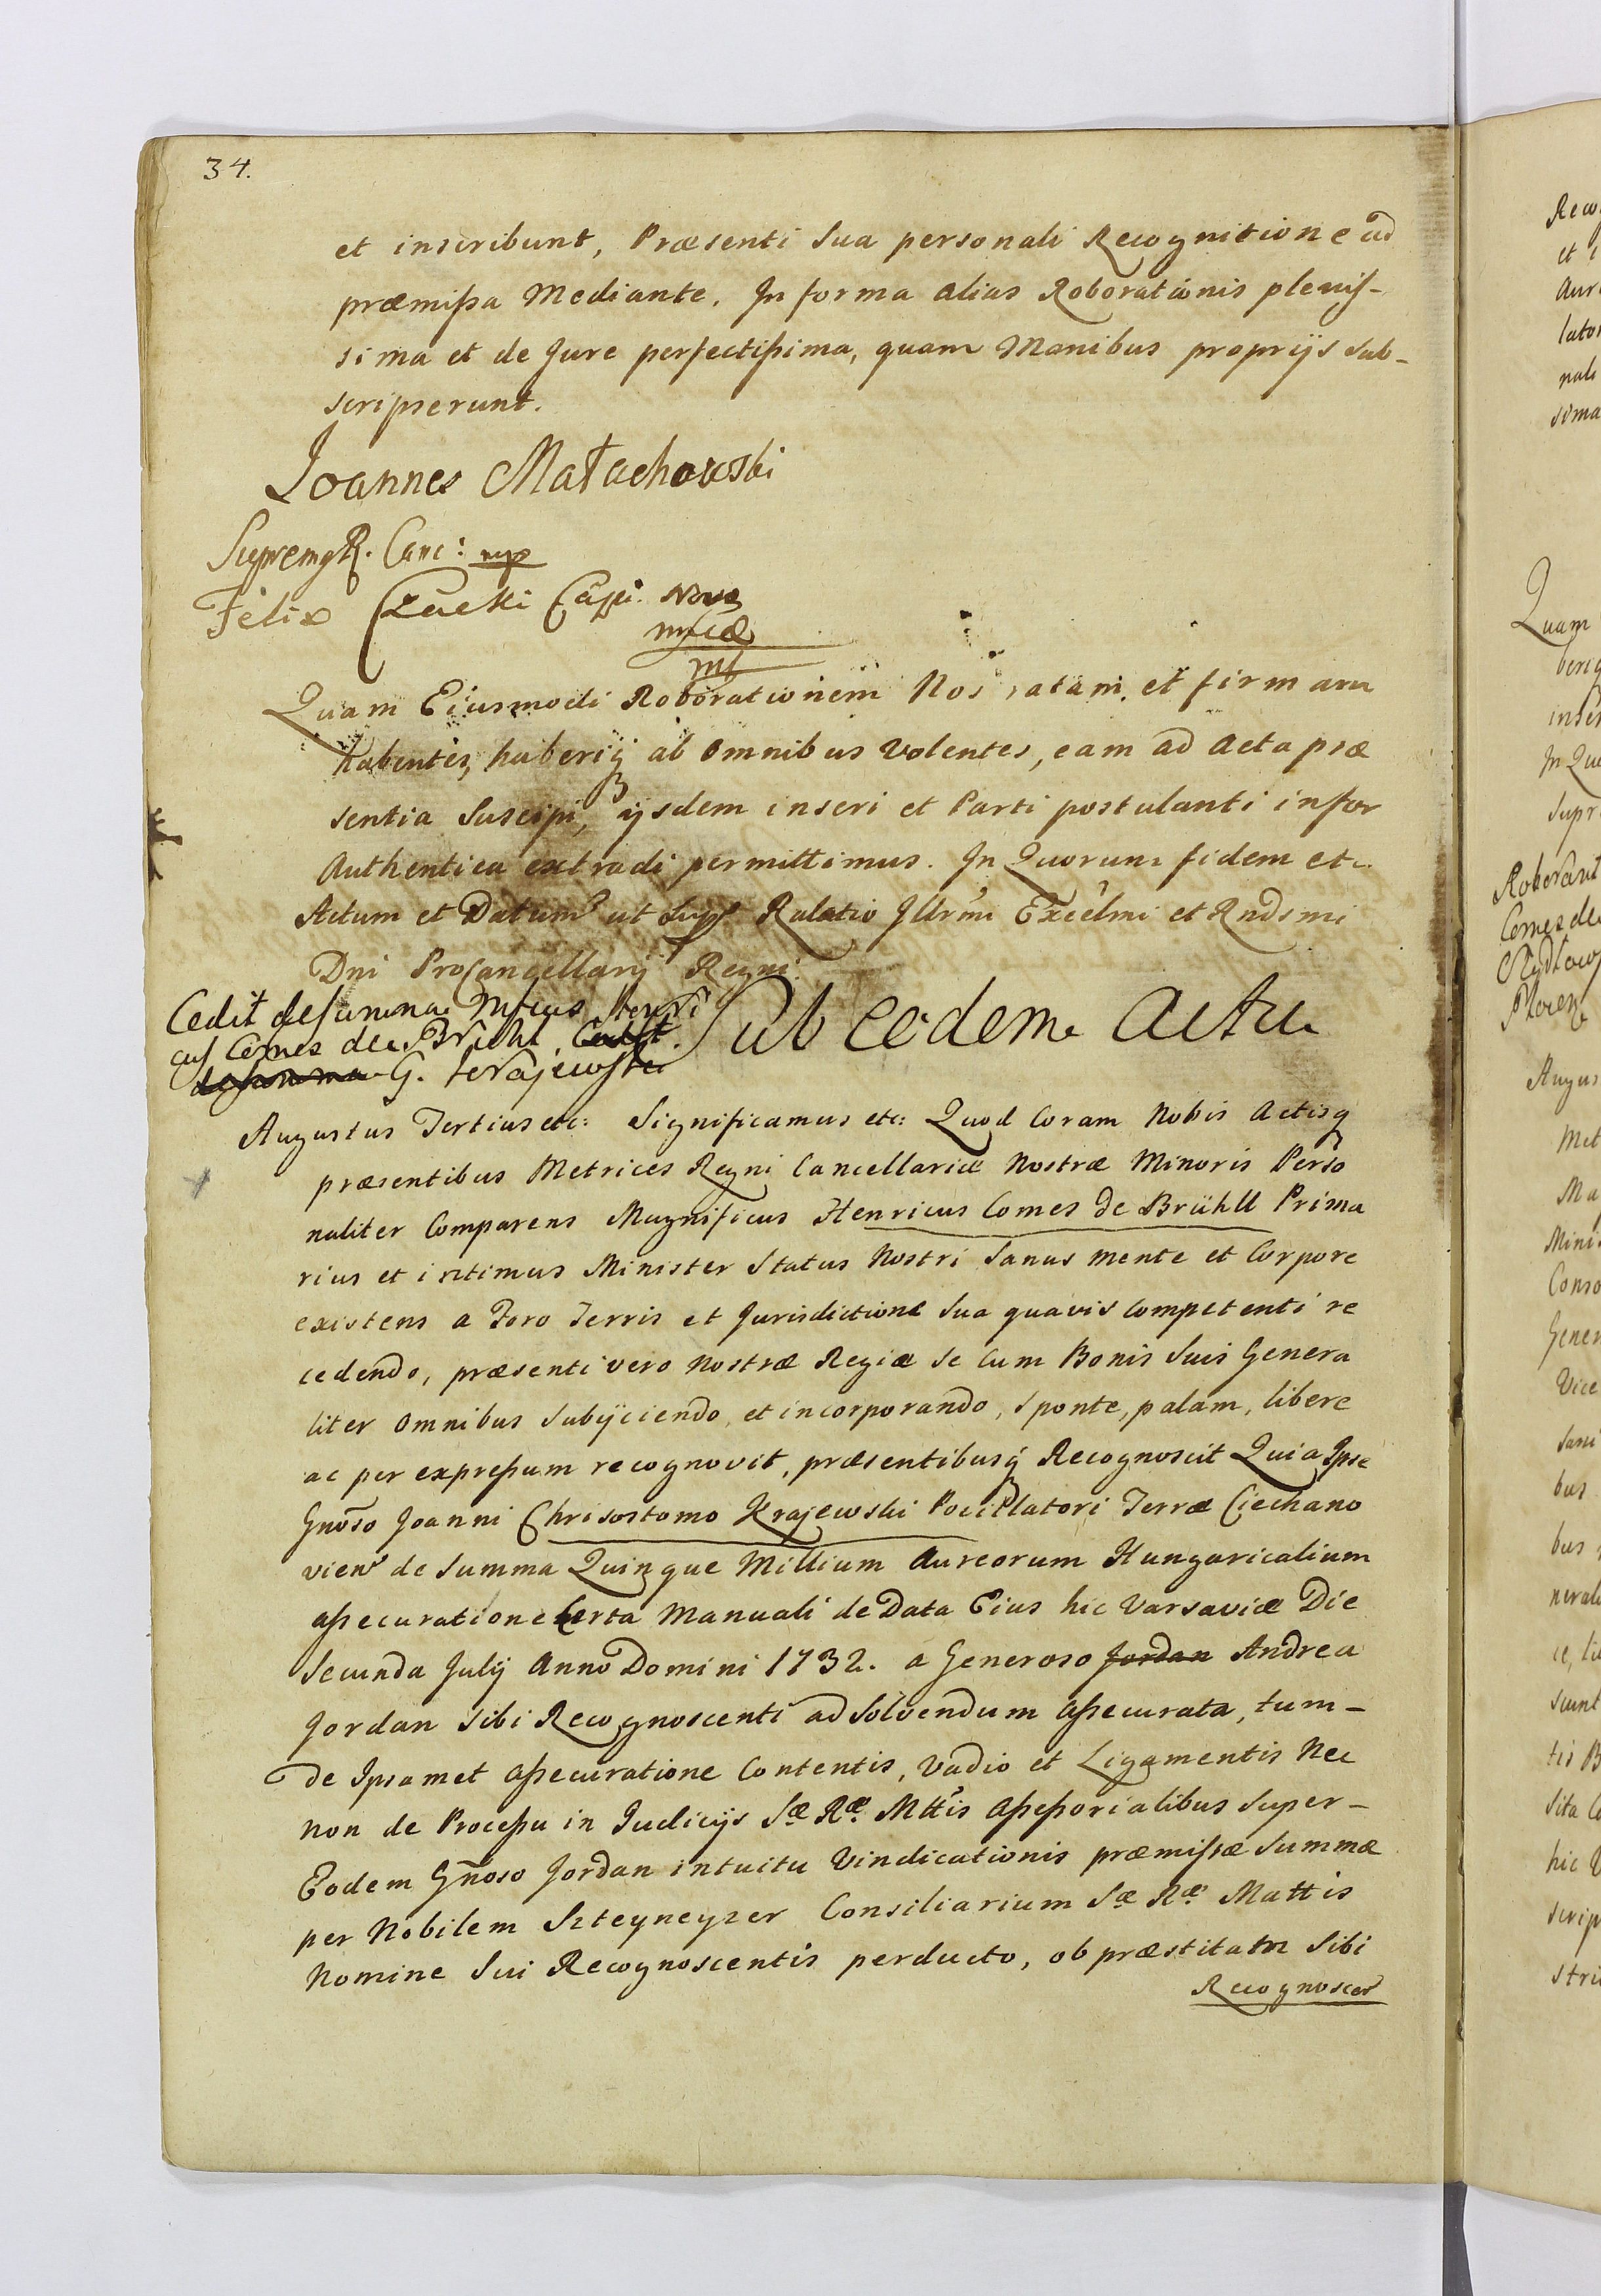 34.
et inscribunt, Præsenti Sua personali Recognitione ad
præmissa Mediante. In forma alias Roborationis plenis-
sima et de Jure perfectissima, quam Manibus proprijs sub-
scripserunt.
Joannes Małachowski
Supremq R. Canc: mp
Felix Czacki Capi. Novo
mscæ
mp
Quam Eiusmodi Roborationem Nos ratam et firmam
habentes, haberiq ab omnibus Volentes, eam ad Acta præ
sentia Suscipi, ijsdem inseri et Parti postulanti in for
Authentica extradi permittimus. In Quorum fidem etc.
Actum et Datum ut Supr Ralatio Illrmi Excelmi et Rndsmi
Dni ProCancellarij Regni.
Cedit de summa Mficus Henri
cus Comes de Bruhl Cedit
de summa G. Krajewski
Sub eodem Actu
Augustus Tertius etc: Significamus etc: Quod Coram Nobis Actisq
præsentibus Metrices Regni Cancellariæ Nostræ Minoris Perso
naliter Comparens Magnificus Henricus Comes de Brühll Prima
rius et intimus Minister Status Nostri Sanus mente et Corpore
existens a Foro Terris et Jurisdictione Sua quavis Competenti re
cedendo, præsenti vero Nostræ Regiæ Se Cum Bonis Suis Genera
liter Omnibus Subijciendo, et incorporando, Sponte, palam, libere
ac per expressum recognovit, præsentibusq Recognoscit Quia Ipse
Gnoso Joanni Chrisostomo Krajewski Pocillatori Terræ Ciechano
vien de Summa Quinque Millium Aureorum Hungaricalium
assecuratione Certa Manuali de Data Eius hic Varsaviæ Die
Secunda Julij Anno Domini 1732. a Generoso Jordan Andrea
Jordan Sibi Recognoscenti ad Solvendum Assecurata, tum-
de Ipsamet Assecuratione Contentis, Vadio et Ligamentis Nec
non de Processu in Judicijs Sæ Ræ Mttis Assessorialibus Super-
Eodem Gnoso Jordan intuitu Vindicationis præmissæ Summæ
per Nobilem Szteyneyzer Consiliarium Sæ Ræ Mattis
Nomine Sui Recognoscentis perducto, ob præstitam Sibi
Recognoscen